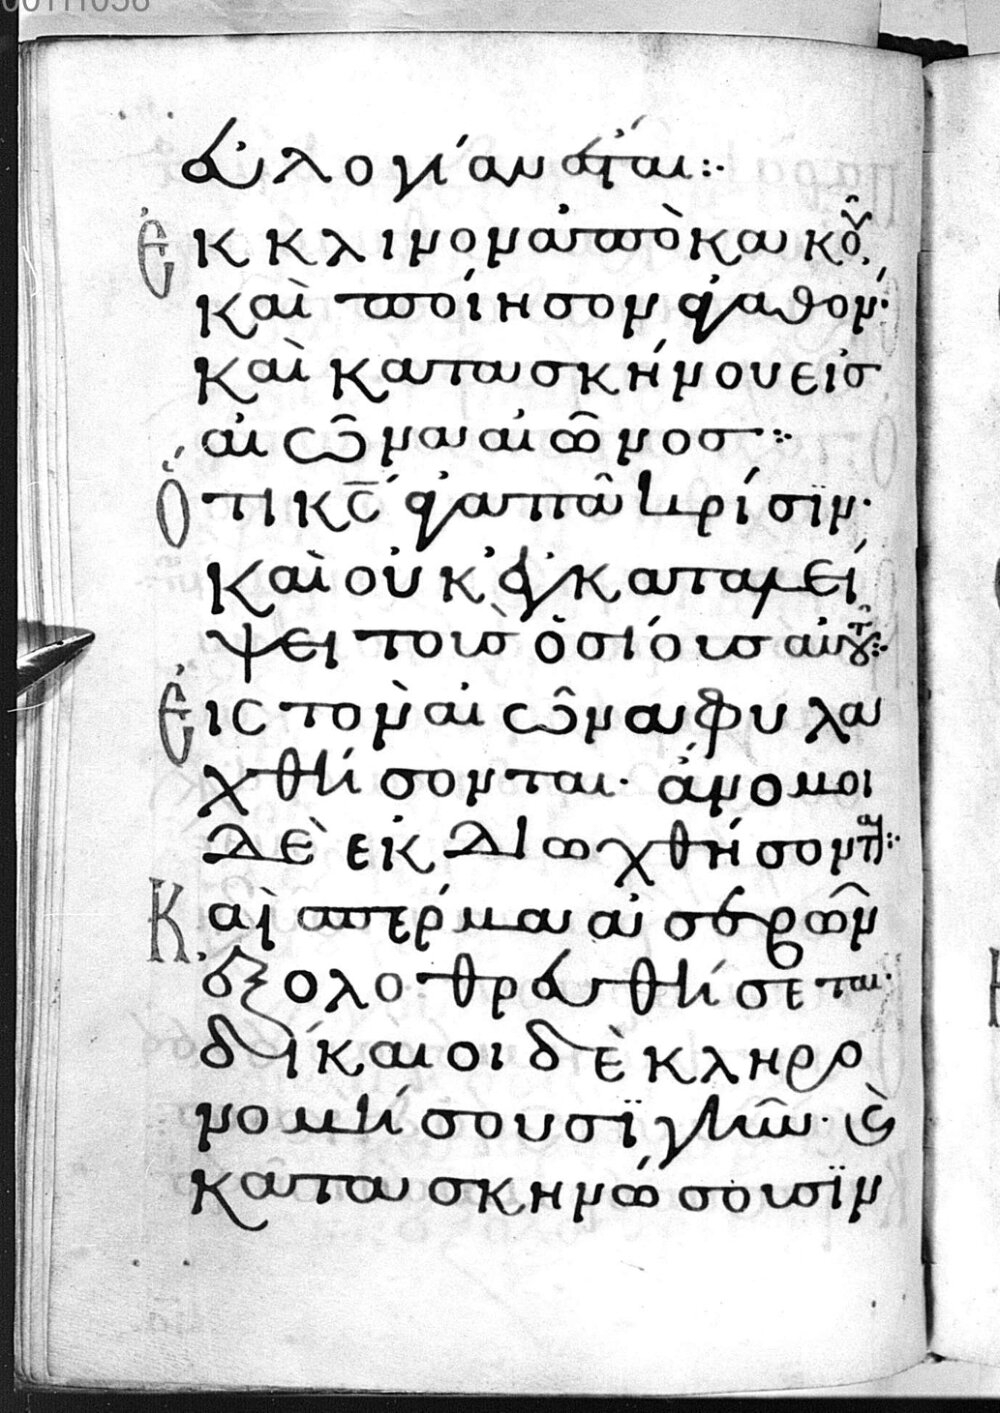 00111058
ευλογίαν ἔσται :·
Ἔκκλινον ἀπὸ κακοῦ,
καὶ ποίησον ἀγαθόν·
καὶ κατασκήνου εἰσ
αἰῶνα αἰῶνοσ :·
Ὅτι κ̅ς̅ ἀγαπᾶ κρίσϊν·
καὶ οὐκ ἐγκαταλεί
ψει τοὺσ ὁσίουσ αὐτοῦ :·
Εἰς τὸν αἰῶνα φυλα
χθήσονται· ἄνομοι
δὲ ἐκδιωχθήσονται :·
Καὶ σπέρμα ἀσεβῶν
ἐξολοθρευθήσεται·
δίκαιοι δὲ κληρο
νομήσουσϊ γῆν· καὶ
κατασκηνώσουσϊν